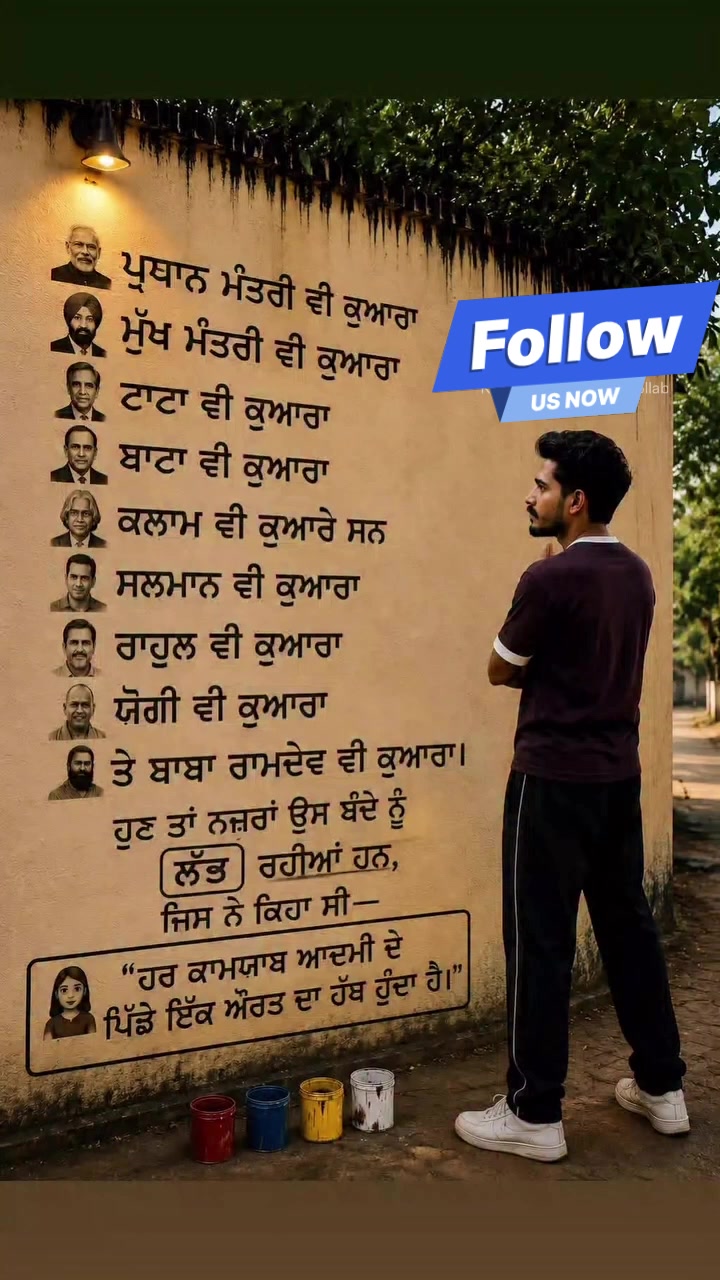 ਪ੍ਰਧਾਨ ਮੰਤਰੀ ਵੀ ਕੁਆਰਾ
ਮੁੱਖ ਮੰਤਰੀ ਵੀ ਕੁਆਰਾ
ਟਾਟਾ ਵੀ ਕੁਆਰਾ
ਬਾਟਾ ਵੀ ਕੁਆਰਾ
ਕਲਾਮ ਵੀ ਕੁਆਰੇ ਸਨ
ਸਲਮਾਨ ਵੀ ਕੁਆਰਾ
ਰਾਹੁਲ ਵੀ ਕੁਆਰਾ
ਯੋਗੀ ਵੀ ਕੁਆਰਾ
ਤੇ ਬਾਬਾ ਰਾਮਦੇਵ ਵੀ ਕੁਆਰਾ।
ਹੁਣ ਤਾਂ ਨਜ਼ਰਾਂ ਉਸ ਬੰਦੇ ਨੂੰ
ਲੱਭ ਰਹੀਆਂ ਹਨ,
ਜਿਸ ਨੇ ਕਿਹਾ ਸੀ—
“ਹਰ ਕਾਮਯਾਬ ਆਦਮੀ ਦੇ
ਪਿੱਛੇ ਇੱਕ ਔਰਤ ਦਾ ਹੱਥ ਹੁੰਦਾ ਹੈ।”
Follow
US NOW